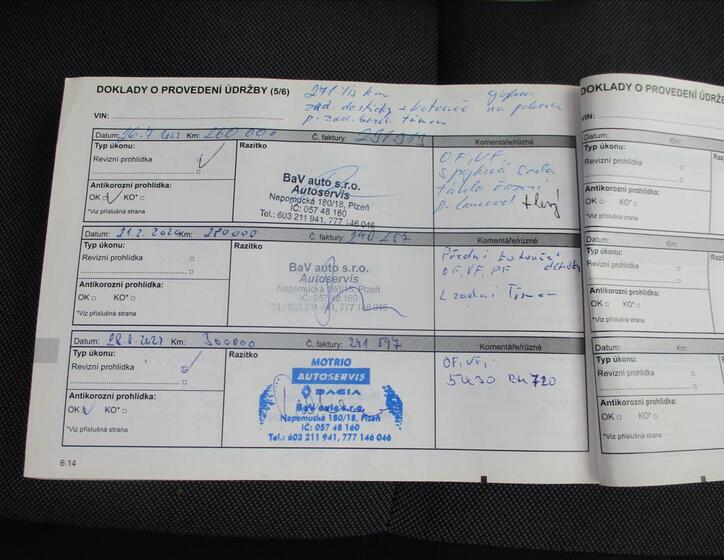 DOKLADY O PROVEDENÍ ÚDRŽBY (5/6)
271 tis km
zad destičky + kotouče
VIN:
Datum: 26.7 2023 Km: 260 000 Č. faktury:
Typ úkonu:
Revizní prohlídka
Antikorozní prohlídka:
OK KO*
*Viz příslušná strana
Razítko
BaV auto s.r.o.
Autoservis
Nepomucká 180/18, Plzeň
IČ: 057 48 160
Tel.: 603 211 941, 777 146 046
Komentáře/různé
OF, VF,
spojková sada
táhla řízení
Datum: 21.2. 2024 Km: 280000 Č. faktury:
Typ úkonu:
Revizní prohlídka
Antikorozní prohlídka:
OK KO*
*Viz příslušná strana
Razítko
BaV auto s.r.o.
Autoservis
Nepomucká 180/18, Plzeň
IČ: 057 48 160
Tel.: 603 211 941, 777 146 046
Komentáře/různé
Přední kotouče+
OF, VF, PF destičky
L zadní Třmen
Datum: Km: 300000 Č. faktury: 241 597
Typ úkonu:
Revizní prohlídka
Antikorozní prohlídka:
OK KO*
*Viz příslušná strana
Razítko
MOTRIO
AUTOSERVIS
DACIA
BaV auto s.r.o.
Nepomucká 180/18, Plzeň
IČ: 057 48 160
Tel.: 603 211 941, 777 146 046
Komentáře/různé
OF, VF,
5W30 RN720
6.14
DOKLADY O PROVEDENÍ ÚDR
VIN:
Datum: Km:
Typ úkonu:
Revizní prohlídka
Antikorozní prohlídka:
OK KO*
*Viz příslušná strana
Datum: Km:
Typ úkonu:
Revizní prohlídka
Antikorozní prohlídka:
OK KO*
*Viz příslušná strana
Datum: Km:
Typ úkonu:
Revizní prohlídka
Antikorozní prohlídka:
OK KO*
*Viz příslušná strana